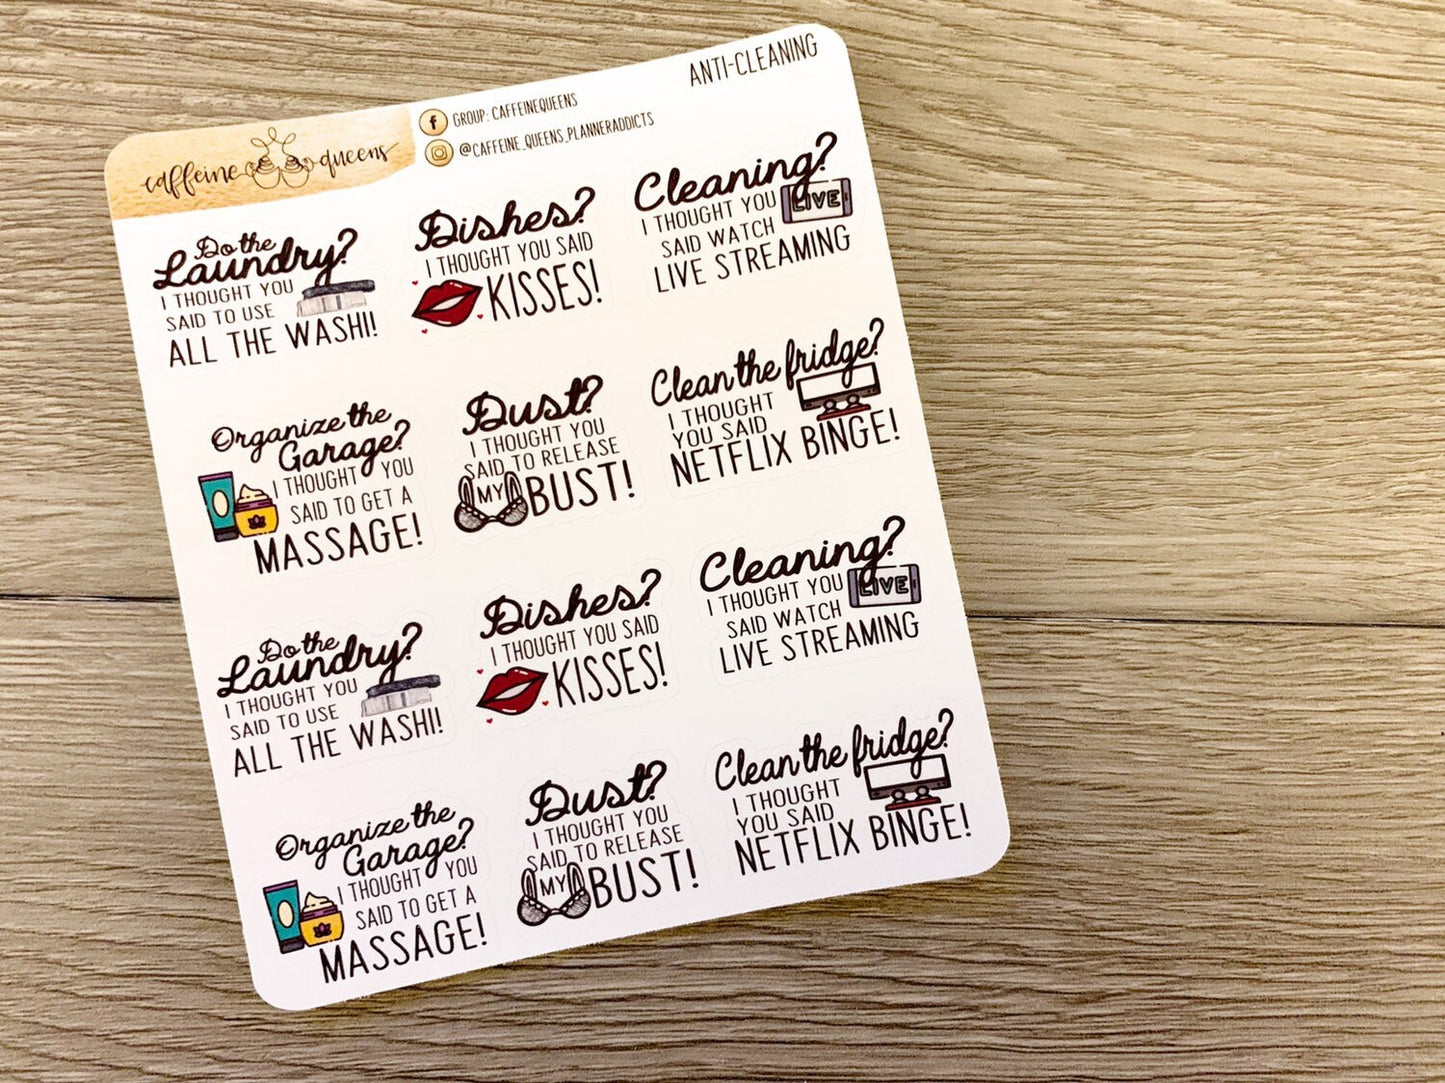 caffeine queens
GROUP: CAFFEINEQUEENS
@CAFFEINE_QUEENS_PLANNERADDICTS
ANTI-CLEANING
Do the
Laundry?
I THOUGHT YOU
SAID TO USE
ALL THE WASHI!
Dishes?
I THOUGHT YOU SAID
KISSES!
Cleaning?
I THOUGHT YOU
LIVE
SAID WATCH
LIVE STREAMING
Organize the
Garage?
I THOUGHT YOU
SAID TO GET A
MASSAGE!
Dust?
I THOUGHT YOU
SAID TO RELEASE
MY BUST!
Clean the fridge?
I THOUGHT
YOU SAID
NETFLIX BINGE!
Do the
Laundry?
I THOUGHT YOU
SAID TO USE
ALL THE WASHI!
Dishes?
I THOUGHT YOU SAID
KISSES!
Cleaning?
I THOUGHT YOU
LIVE
SAID WATCH
LIVE STREAMING
Organize the
Garage?
I THOUGHT YOU
SAID TO GET A
MASSAGE!
Dust?
I THOUGHT YOU
SAID TO RELEASE
MY BUST!
Clean the fridge?
I THOUGHT
YOU SAID
NETFLIX BINGE!